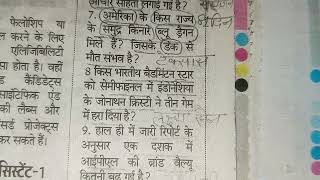 फेलोशिप या
ल करने के लिए
एलिजिबिलिटी
सा होता है। वहीं
कैंडिडेट्स
साइंटिफिक एंड
की लैब्स और
सर्ड प्रोजेक्ट्स
कर सकते हैं।
सिस्टेंट-1
आचार संहिता लगाई गई है?
7. (अमेरिका) के किस राज्य
के समुद्र किनारे (ब्लू ड्रैगन
मिले हैं? जिसके (डंक) से
मौत संभव है?
टेक्सास
8 किस भारतीय बैडमिंटन स्टार
को सेमीफाइनल में इंडोनेशिया
के जोनाथन क्रिस्टी ने तीन गेम
में हरा दिया है?
9. हाल ही में जारी रिपोर्ट के
अनुसार एक दशक में
आईपीएल की ब्रांड वैल्यू
कितनी बढ़ गई है?